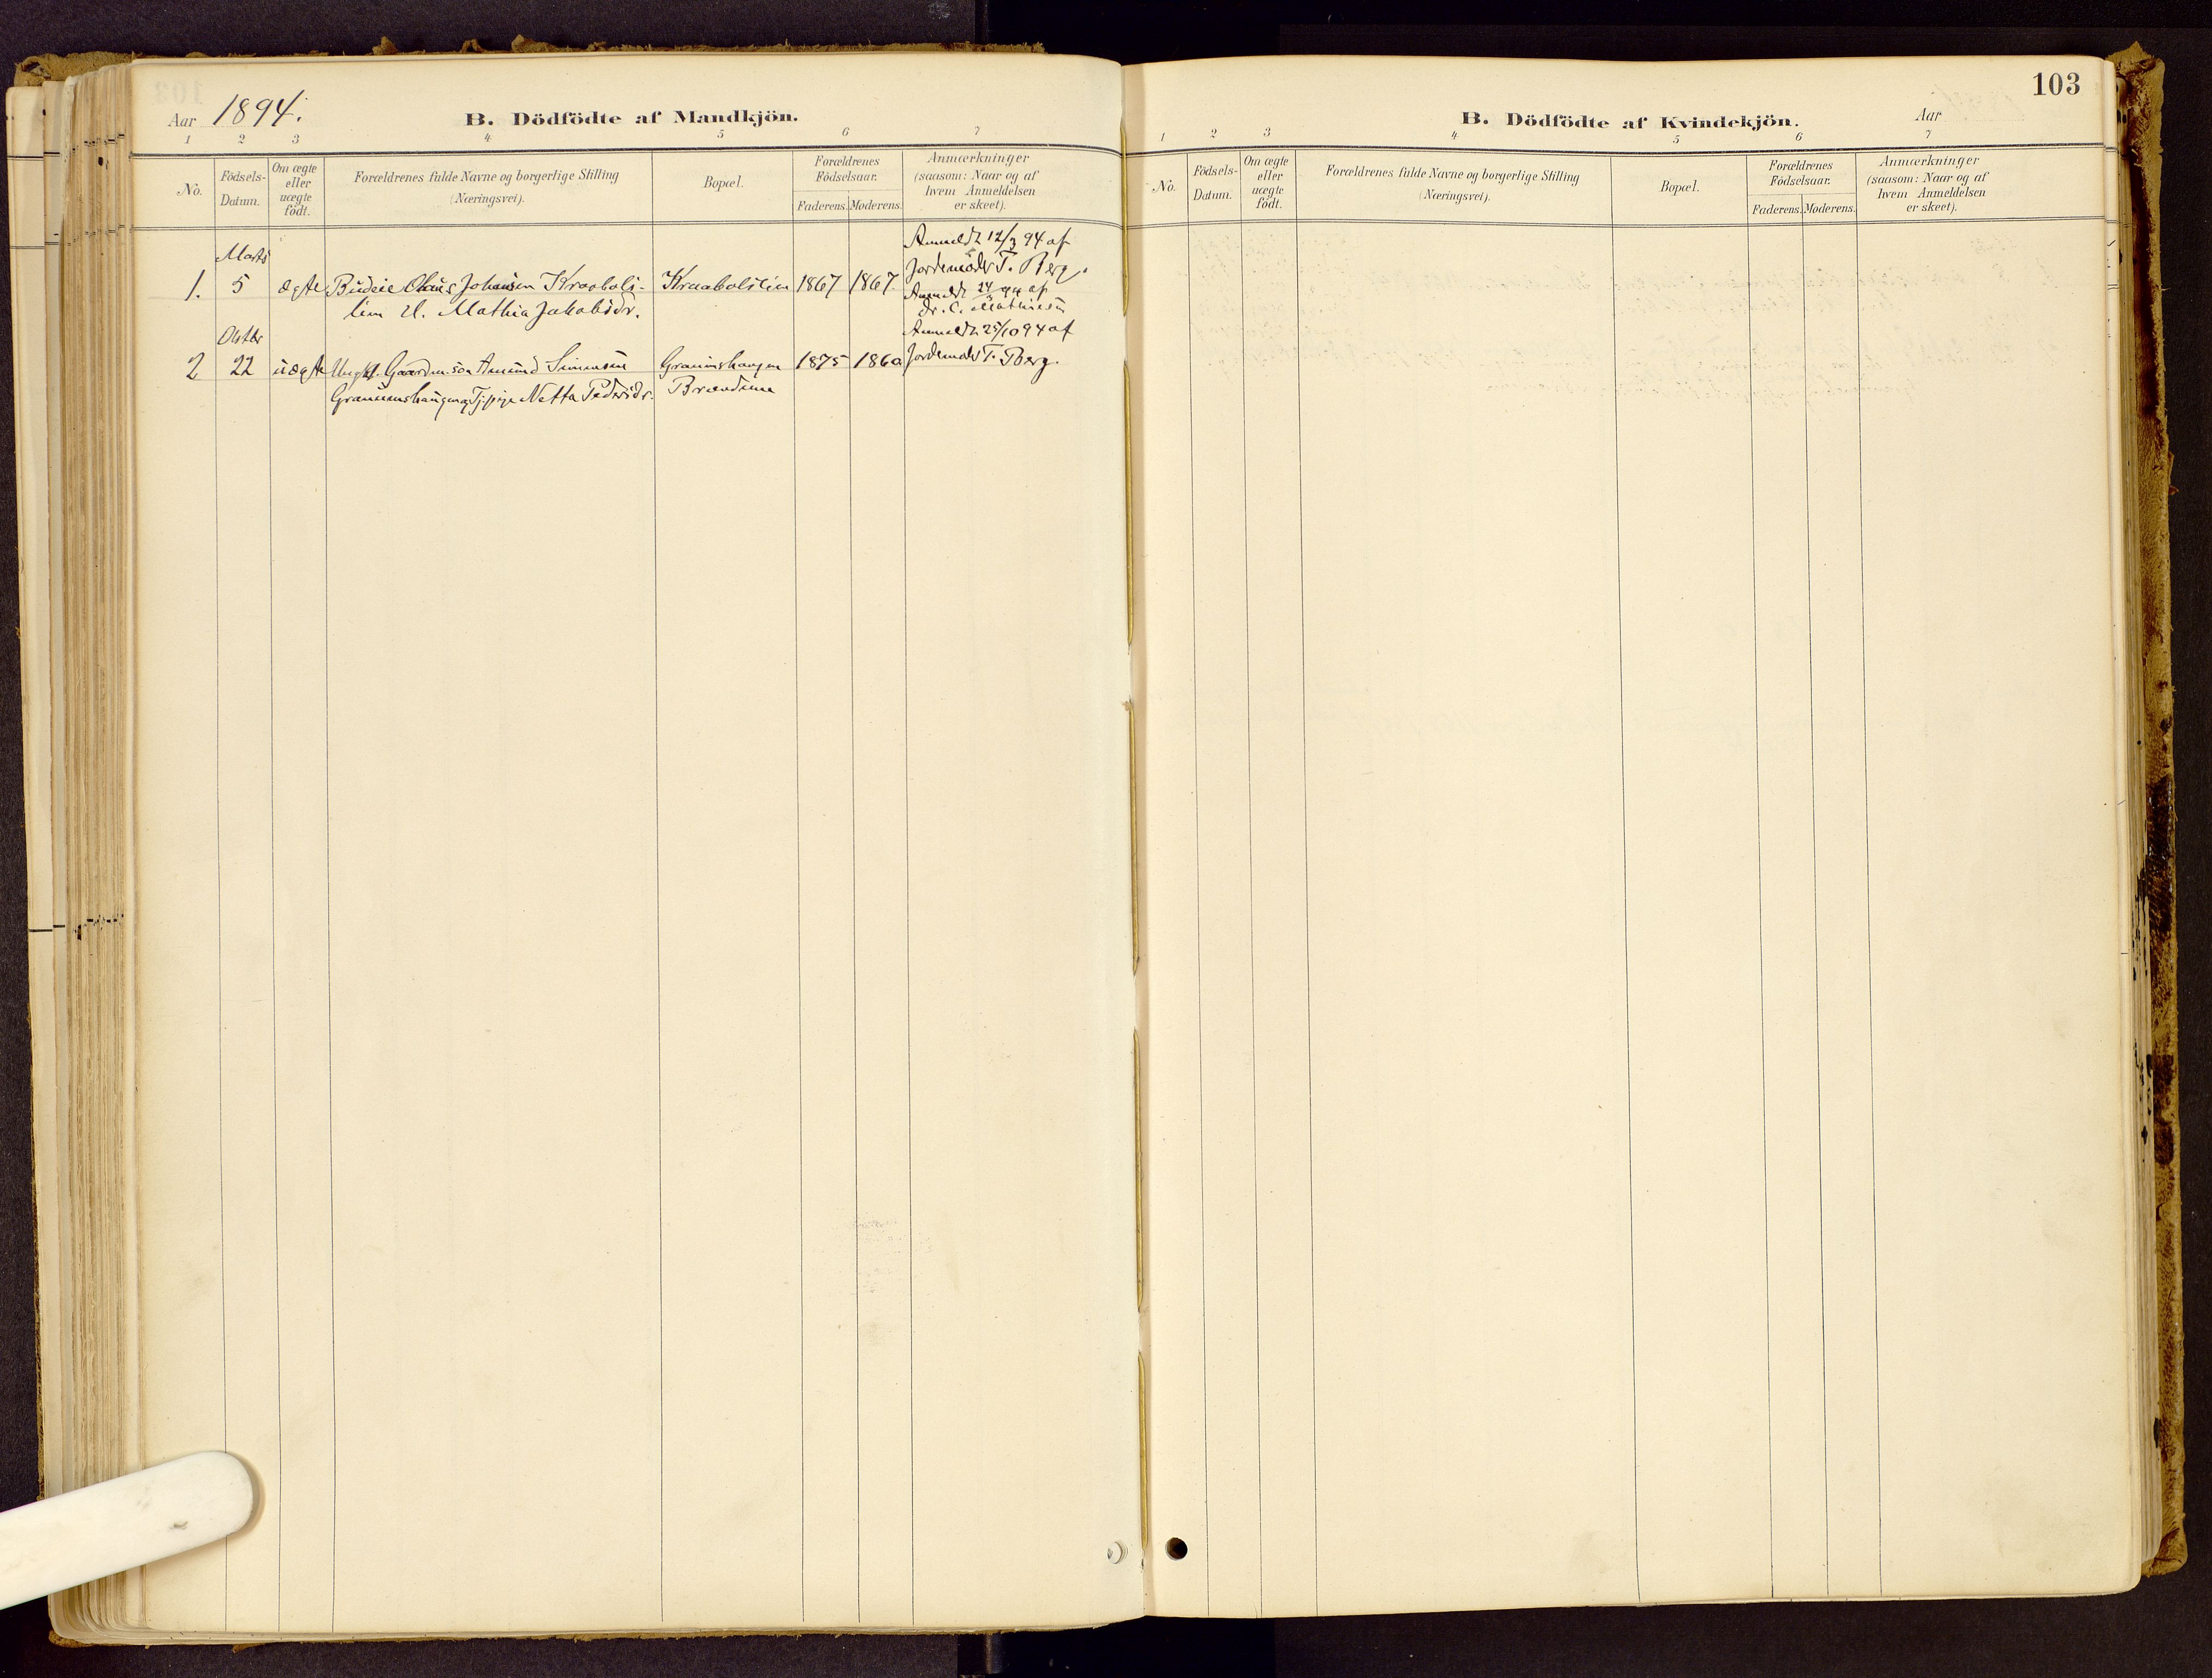 Aar 1894.
B. Dödfödte af Mandkjön.
1 2 3 4 5 6 7
No.
Födsels-
Datum.
Om ægte
eller
uægte
födt.
Forældrenes fulde Navne og borgerlige Stilling
(Næringsvei).
Bopæl.
Forældrenes
Födselsaar.
Faderens. Moderens.
Anmærkninger
(saasom: Naar og af
hvem Anmeldelsen
er skeet).
Marts
1. 5 ægte Johansen Kraabøls-
Mathia Jakobsdr.
Kraabølslien 1867 1867
Anmeldt 12/3 94 af
Jordemoder T. Berg.
Anmeldt 94 af
dr. C. Mathiesen
Oktbr
2 22 uægte Ungk. Gaardm.søn Amund Simensen
og Tj.pige Netta Pedersdr.
1875 1860
Anmeldt 25/10 94 af
Jordemoder T. Berg.
103
B. Dödfödte af Kvindekjön.
Aar
1 2 3 4 5 6 7
No.
Födsels-
Datum.
Om ægte
eller
uægte
födt.
Forældrenes fulde Navne og borgerlige Stilling
(Næringsvei).
Bopæl.
Forældrenes
Födselsaar.
Faderens. Moderens.
Anmærkninger
(saasom: Naar og af
hvem Anmeldelsen
er skeet).